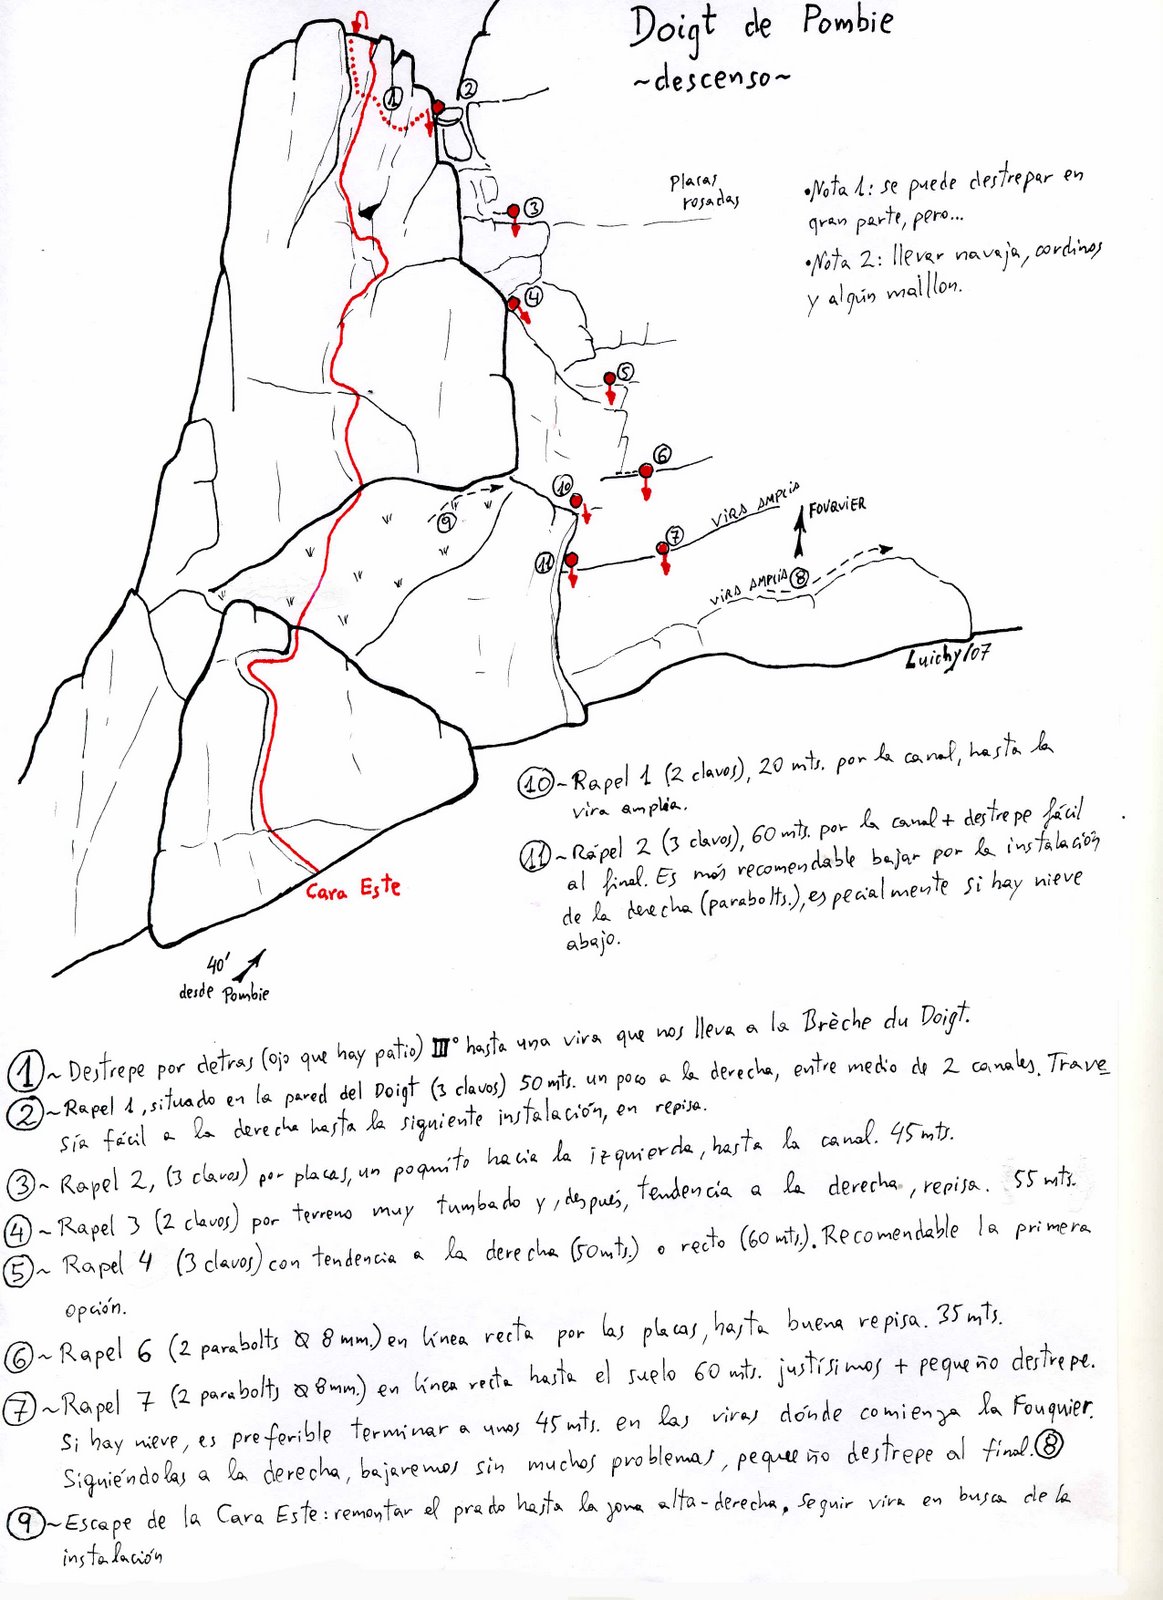 Doigt de Pombie
~descenso~
1
2
3
4
5
6
7
8
9
10
11
Placas
rosadas
•Nota 1: se puede destrepar en
gran parte, pero...
•Nota 2: llevar navaja, cordinos
y algún maillon.
VIRA AMPLIA
FOUQUIER
VIRA AMPLIA
Luichy/07
Cara Este
40'
desde Pombie
10~Rapel 1 (2 clavos), 20 mts. por la canal, hasta la
vira amplia.
11~Rápel 2 (3 clavos), 60 mts. por la canal + destrepe fácil
al final. Es más recomendable bajar por la instalación
de la derecha (parabolts.), especialmente si hay nieve
abajo.
1~Destrepe por detras (ojo que hay patio) III° hasta una vira que nos lleva a la Brèche du Doigt.
2~Rapel 1, situado en la pared del Doigt (3 clavos) 50 mts. un poco a la derecha, entre medio de 2 canales. Trave
sía fácil a la derecha hasta la siguiente instalación, en repisa.
3~ Rapel 2, (3 clavos) por placas, un poquito hacia la izquierda, hasta la canal. 45 mts.
4~ Rapel 3 (2 clavos) por terreno muy tumbado y, después, tendencia a la derecha, repisa. 55 mts.
5~ Rapel 4 (3 clavos) con tendencia a la derecha (50 mts.) o recto (60 mts.). Recomendable la primera
opción.
6~ Rapel 6 (2 parabolts Ø 8 mm.) en línea recta por las placas, hasta buena repisa. 35 mts.
7~Rapel 7 (2 parabolts Ø 8 mm.) en línea recta hasta el suelo 60 mts. justísimos + pequeño destrepe.
Si hay nieve, es preferible terminar a unos 45 mts. en las viras dónde comienza la Fouquier.
Siguiéndolas a la derecha, bajaremos sin muchos problemas, pequeño destrepe al final. 8
9~Escape de la Cara Este: remontar el prado hasta la zona alta-derecha. Seguir vira en busca de la
instalación